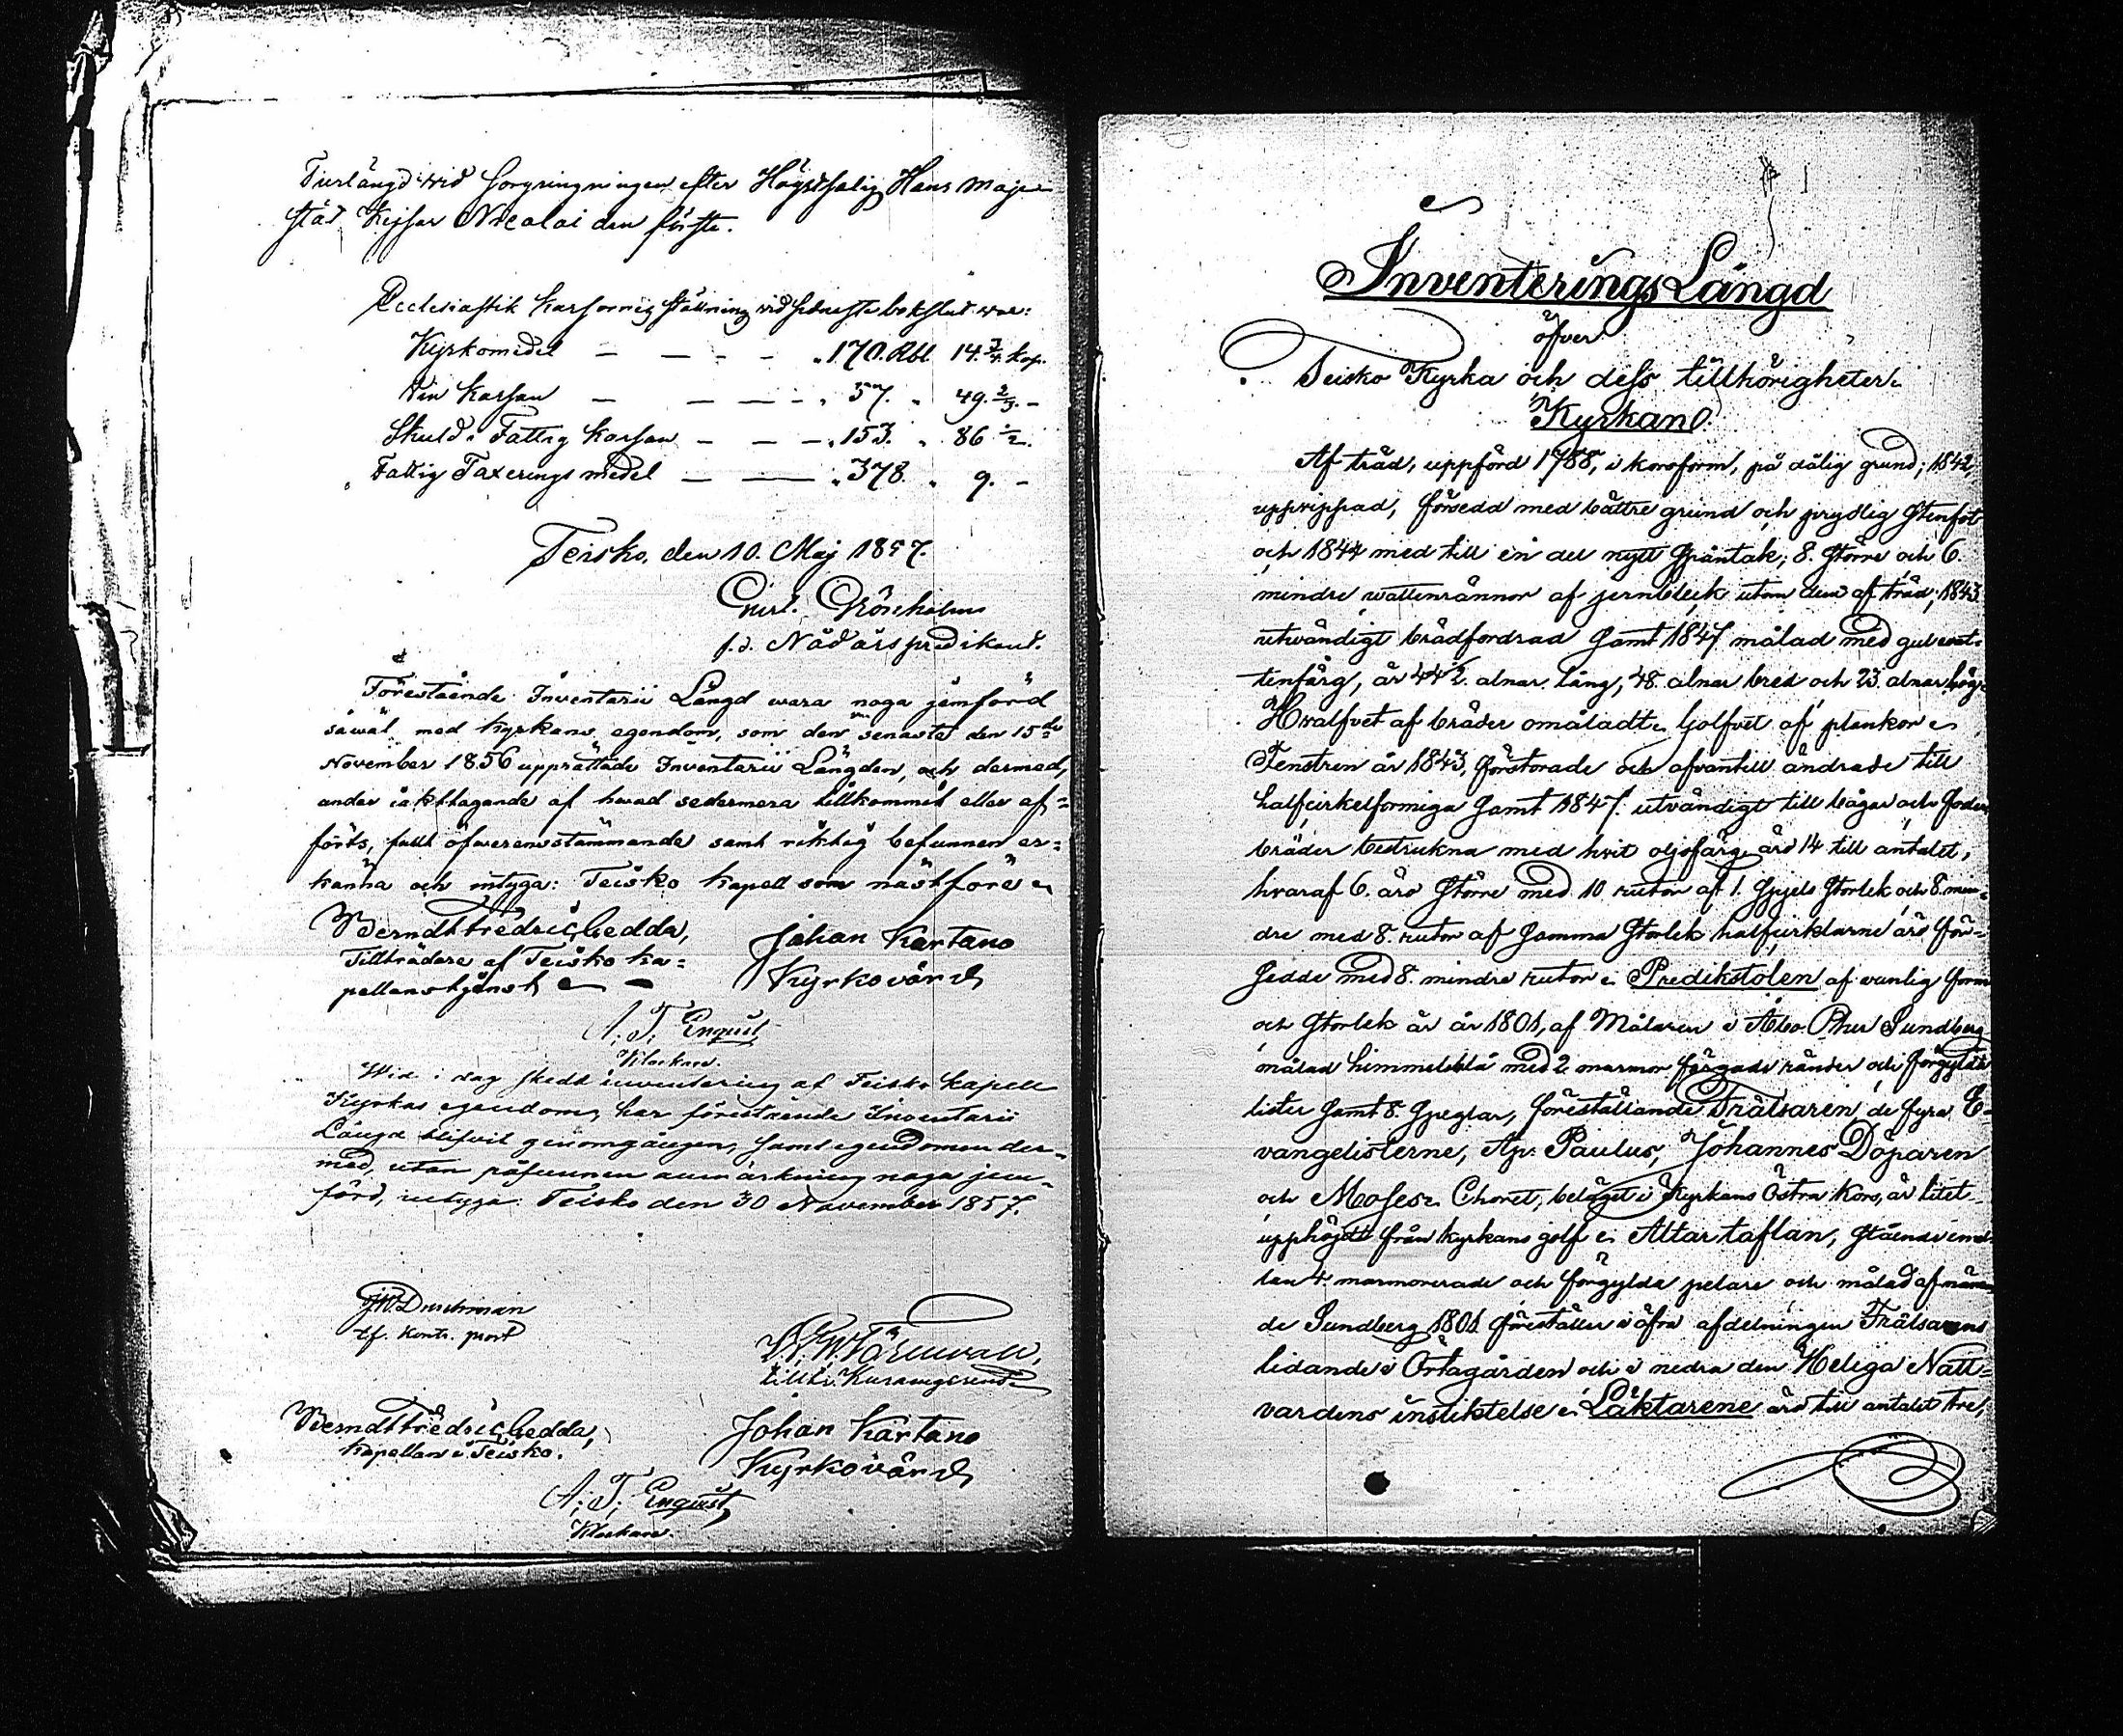 Turlängd wid sorgringningen efter Högstsalig Hans Maje-
stät Kejsar Nicolai den förste.
Ecclesiastik kassornes ställning vid senaste bokslut war:
Kyrkomedel — — - - „ 170. Rbl. 14. 3/4. kop.
Vin kassan — — — - „ 37. „ 49. 2/3. -
Skuld i Fattig kassan — — — „ 153. „ 86 1/2.
Fattig Taxerings medel — — „ 378. „ 9. -
Teisko, den 10. Maj 1857.
f.d. Nådårspredikant.
Förestående Inventarii Längd wara noga jemförd
såwäl med kyrkans egendom, som den senaste den 15de
November 1856 upprättade Inventarii Längden, och dermed,
under iakttagande af hwad sedermera tillkommit eller af=
förts, fullt öfwerensstämmande samt riktig befunnen er=
känna och intyga: Teisko kapell som näst före
Berndt Fredric Gedda,
Tillträdare af Teisko ka=
pellanstjenst
Johan Kartano
Kyrkovärd
A. T. Enqvist
Klockare.
Wid i dag skedd inventering af Teisko kapell
Kyrkas egendom, har förestående Inventarii
Längd blifvit genomgången, samt egendomen der-
med, utan påfunnen anmärkning noga jem-
förd, intyga: Teisko den 30 November 1857.
tf. kontr. prost
Berndt Fredric Gedda,
Kapellan i Teisko.
Johan Kartano
Kyrkovärd
A. T. Enqvist
Klockare.
Inventerings Längd
öfver
Teisko Kyrka och dess tillhörigheter.
Kyrkan.
Af träd, uppförd 1788, i korsform, på dålig grund; 1842,
upprippad, försedd med bättre grund och prydlig stenfot
och 1844 med till en del nytt spåntak; 8. större och 6.
mindre wattenrännor af jernbleck utom dem af träd; 1843
utwändigt brädfordrad samt 1847 målad med gul wat-
tenfärg, är 44 1/2. alnar lång, 48. alnar bred och 23. alnar hög.
Hwalfvet af bräder omåladt. Golfvet af plankor.
Fenstren år 1843, förstorade och ofvantill ändrade till
halfcirkelformiga samt 1847. utvändigt till bågar och foder
bräder bestrukna med hvit oljefärg, äro 14 till antalet,
hvaraf 6. äro större med 10 rutor af 1. spjels storlek och 8. min-
dre med 8. rutor af samma storlek halfcirklarne äro för-
sedde med 8. mindre rutor. Predikstolen af vanlig form
och storlek är år 1801, af Målaren i Åbo Sundberg
målad himmelsblå med 2 marmor färgade ränder och förgylda
lister samt 8. speglar, föreställande Frälsaren, de fyra E-
vangelisterne, Ap. Paulus, Johannes Döparen
och Moses. Choret, beläget i Kyrkans Östra Kors, är litet
upphöjdt från kyrkans golf. Altartaflan, stående emel-
lan 4. marmorerade och förgylda pelare och målad af nämn-
de Sundberg 1801 föreställer i öfra afdelningen Frälsarens
lidande i Örtagården och i nedra den Heliga Natt-
vardens instiktelse. Läktarene äro till antalet tre,